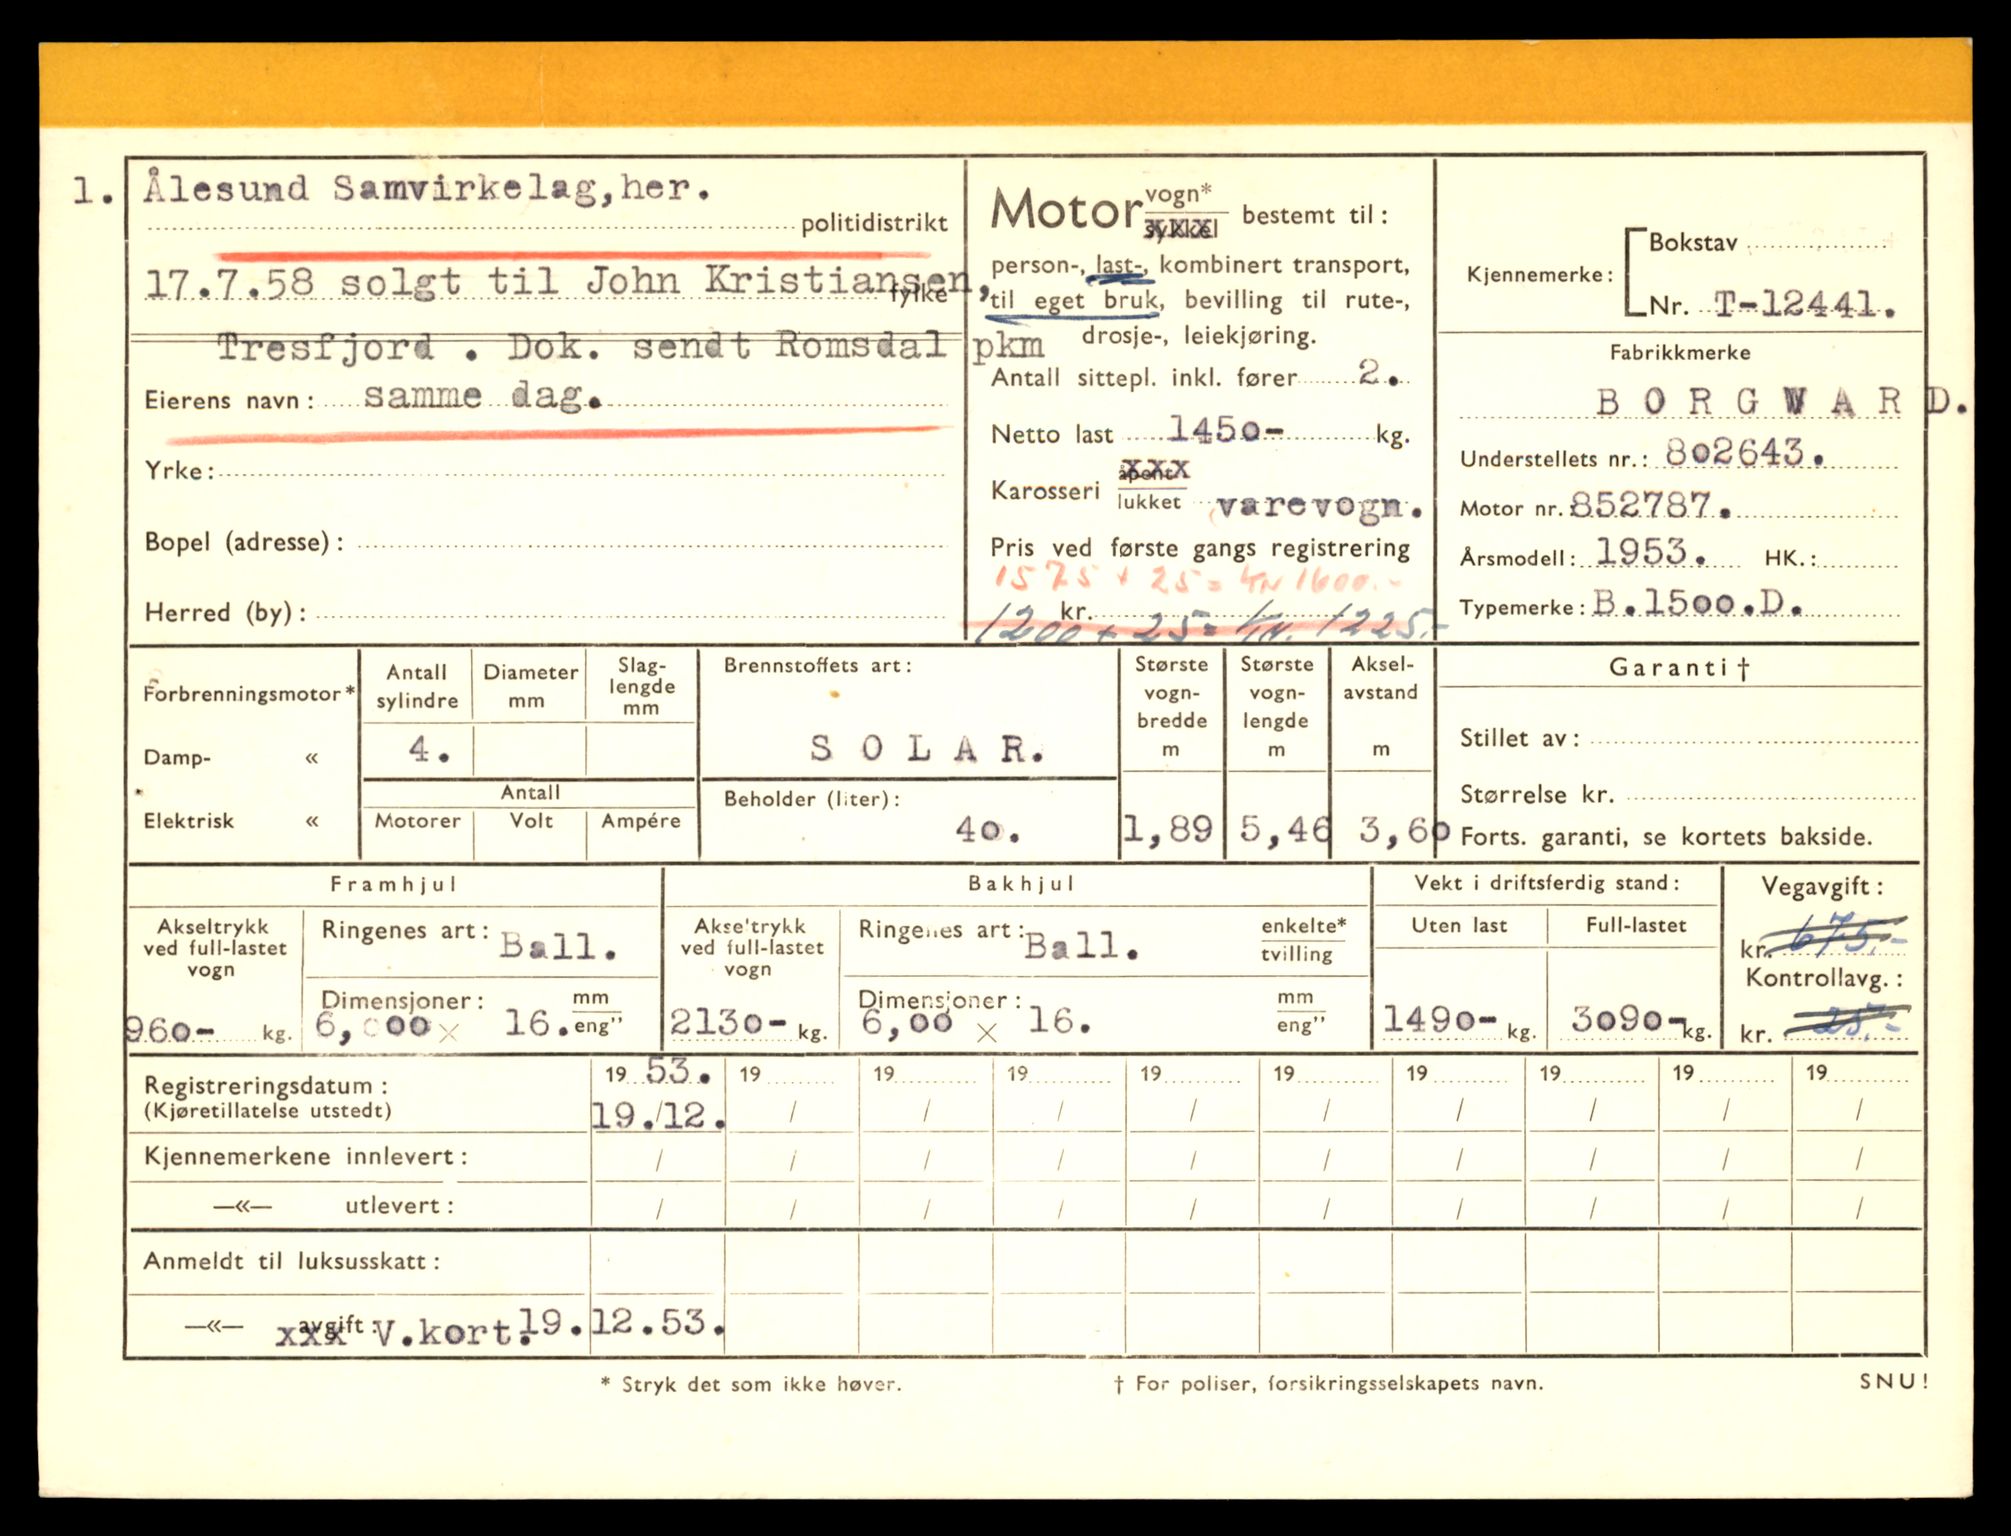 1. Ålesund Samvirkelag, her.
politidistrikt
17.7.58 solgt til John Kristiansen,
fylke
Tresfjord . Dok. sendt Romsdal pkm
Eierens navn: samme dag.
Yrke:
Bopel (adresse):
Herred (by):
Motor vogn* / sykkel bestemt til:
xxx
person-, last-, kombinert transport,
til eget bruk, bevilling til rute-,
drosje-, leiekjøring.
Antall sittepl. inkl. fører 2.
Netto last 1450- kg.
Karosseri åpent / lukket varevogn.
xxx
Pris ved første gangs registrering
1575 + 25 = kr 1600.-
kr.
1200 + 25 = kr. 1225.-
Kjennemerke: Bokstav
Nr. T-12441.
Fabrikkmerke
BORGWARD.
Understellets nr.: 802643.
Motor nr. 852787.
Årsmodell: 1953. HK.:
Typemerke: B.1500.D.
Forbrenningsmotor*
Damp- «
Elektrisk «
Antall sylindre
Diameter mm
Slag-lengde mm
4.
Antall
Motorer Volt Ampére
Brennstoffets art:
SOLAR.
Beholder (liter):
40.
Største vogn-bredde m
1,89
Største vogn-lengde m
5,46
Aksel-avstand m
3,60
Garanti †
Stillet av:
Størrelse kr.
Forts. garanti, se kortets bakside.
Framhjul
Akseltrykk ved full-lastet vogn
960- kg.
Ringenes art: Ball.
Dimensjoner: mm
6,000 x 16. eng"
Bakhjul
Akseltrykk ved full-lastet vogn
2130- kg.
Ringenes art: Ball. enkelte* / tvilling
Dimensjoner: mm
6,00 x 16. eng"
Vekt i driftsferdig stand:
Uten last Full-lastet
1490- kg. 3090- kg.
Vegavgift:
kr. 675.-
Kontrollavg.:
kr. 25.-
Registreringsdatum: 19 53. 19 19 19 19 19 19 19 19 19
(Kjøretillatelse utstedt) 19./12. / / / / / / / / /
Kjennemerkene innlevert: / / / / / / / / / /
—«— utlevert: / / / / / / / / / /
Anmeldt til luksusskatt:
—«— avgift: xxx V.kort. 19.12.53.
* Stryk det som ikke høver. † For poliser, forsikringsselskapets navn. SNU!